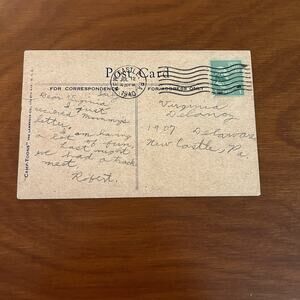 Post Card
FOR CORRESPONDENCE
FOR ADDRESS ONLY
12
1940
Dear Virginia
I just
recieved Mommy's
letter.
I am having
lots of fun.
Last night
we had a track
meet
Robert.
Virginia
Delaney
1907 Delaware
New Castle, Pa.